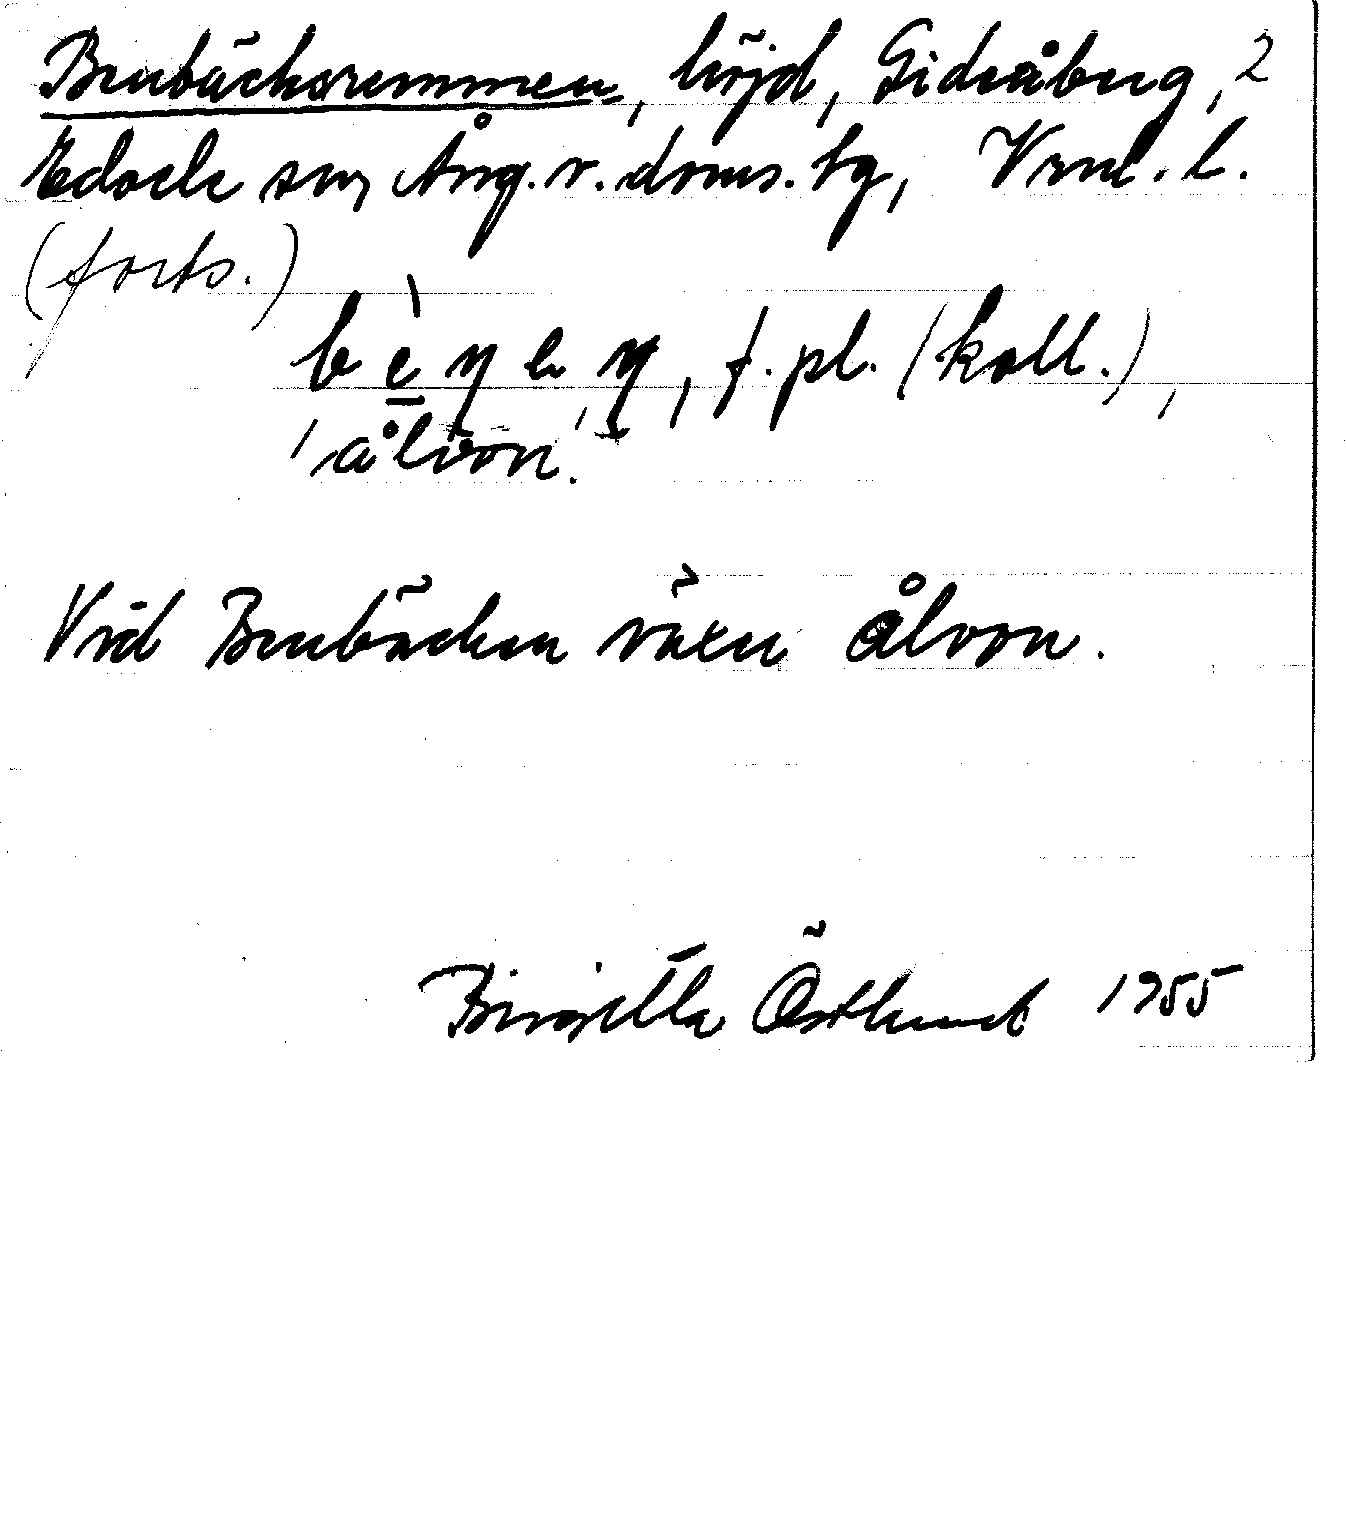 Benbäcksremmen, höjd, Gideåberg, 2
Edsele sn, Ång. v. doms. tg, Vrml. l.
(forts.)
bèṇeṇ, f. pl. (koll.),
'ålvon'.
Vid Benbäcken växer ålvon.
Birgitta Östlund 1955